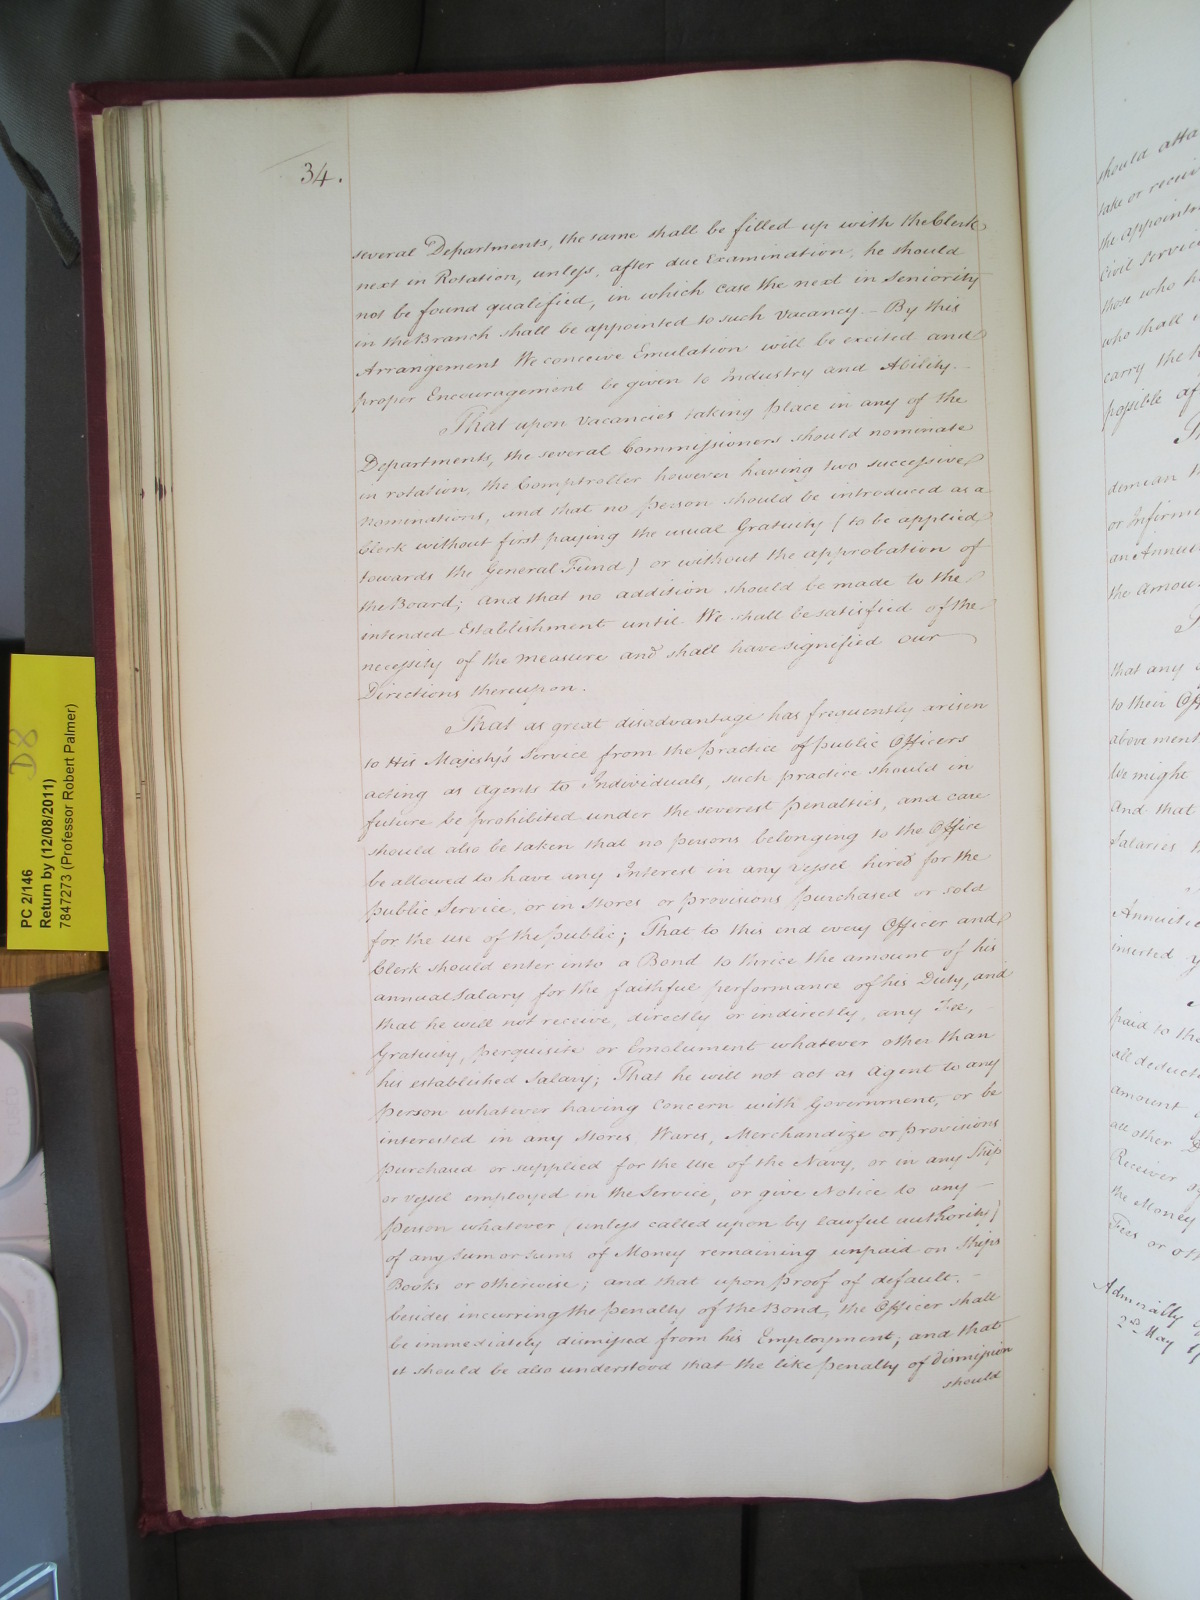 34.
several Departments, the same shall be filled up with the Clerk
next in Rotation, unless, after due Examination, he should
not be found qualified, in which case the next in Seniority
in the Branch shall be appointed to such Vacancy. – By this
Arrangement We conceive Emulation will be excited and
proper Encouragement be given to Industry and Ability. –
That upon Vacancies taking place in any of the
Departments, the several Commissioners should nominate
in rotation, the Comptroller however having two successive
Nominations, and that no person should be introduced as a
Clerk without first paying the usual Gratuity (to be applied
towards the General Fund) or without the approbation of
the Board; And that no addition should be made to the
intended Establishment until We shall be satisfied of the
necessity of the measure and shall have signified our
Directions thereupon.
That as great disadvantage has frequently arisen
to His Majesty's Service from the practice of public Officers
acting as Agents to Individuals, such practice should in
future be prohibited under the severest penalties, and care
should also be taken that no persons belonging to the Office
be allowed to have any Interest in any Vessel hired for the
public Service, or in Stores or provisions purchased or sold
for the use of the public; That to this end every Officer and
Clerk should enter into a Bond to thrice the amount of his
annual Salary for the faithful performance of his Duty, and
that he will not receive, directly or indirectly, any Fee, –
Gratuity, perquisite or Emolument whatever other than
his established Salary; That he will not act as Agent to any
person whatever having Concern with Government, or be
interested in any Stores, Wares, Merchandize or provisions
purchased or supplied for the Use of the Navy, or in any Ship
or Vessel employed in the Service, or give Notice to any –
person whatever (unless called upon by lawful authority)
of any Sum or Sums of Money remaining unpaid on Ships
Books or otherwise; and that upon proof of default, –
besides incurring the penalty of the Bond, the Officer shall
be immediately dismissed from his Employment; and that
it should be also understood that the like penalty of dismission
should
D8
PC 2/146
Return by (12/08/2011)
7847273 (Professor Robert Palmer)
should
take or
the
Civil
those who
who shall
carry the
possible
demean
or
the
that any
to their
above
We might
And that
Salaries
inserted
paid to the
all
amount
all other
Receiver
the Money
Fees or
Admiralty
2nd May